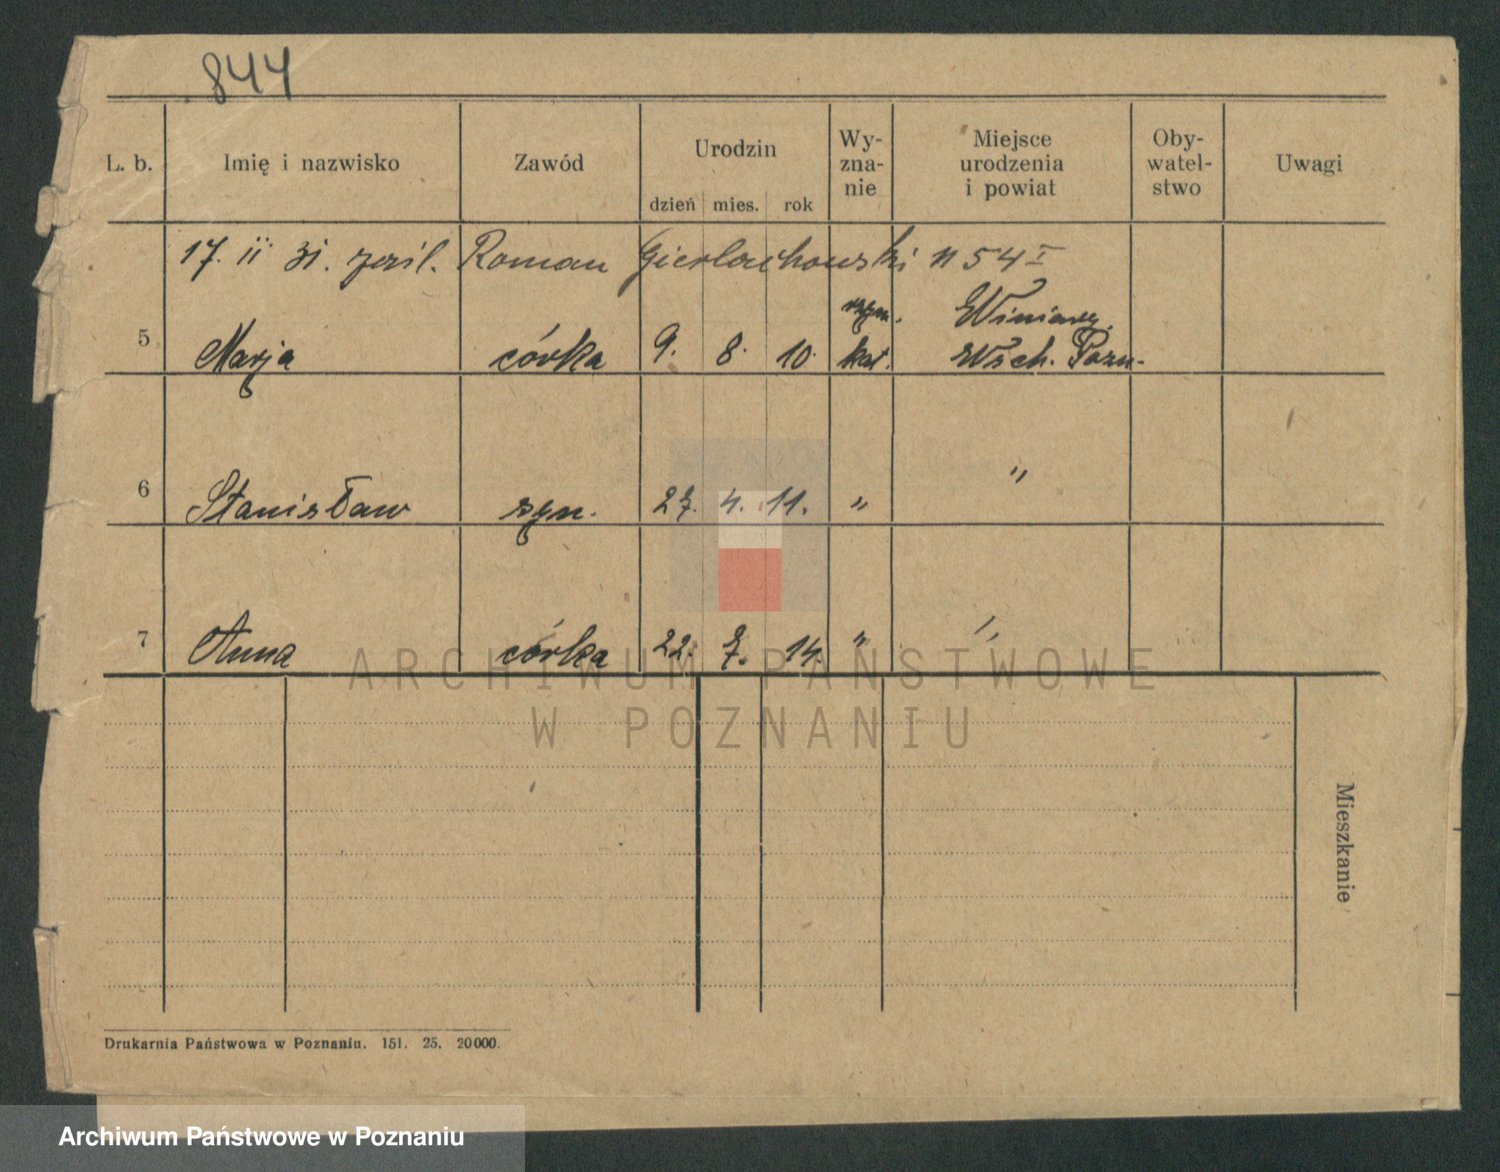 844
L. b. Imię i nazwisko Zawód Urodzin Wy- zna- nie Miejsce urodzenia i powiat Oby- watel- stwo Uwagi
dzień mies. rok
17. II 31. Roman Gierlachowski n 54 I
rzym. Winiary
5 Marja córka 9. 8. 10. kat. Wsch. Pozn.
6 Stanisław syn. 27. 4. 11. " "
7 Anna córka 22. 7. 14. " "
ARCHIWUM PAŃSTWOWE
W POZNANIU
Mieszkanie
Drukarnia Państwowa w Poznaniu. 151. 25. 20000.
Archiwum Państwowe w Poznaniu